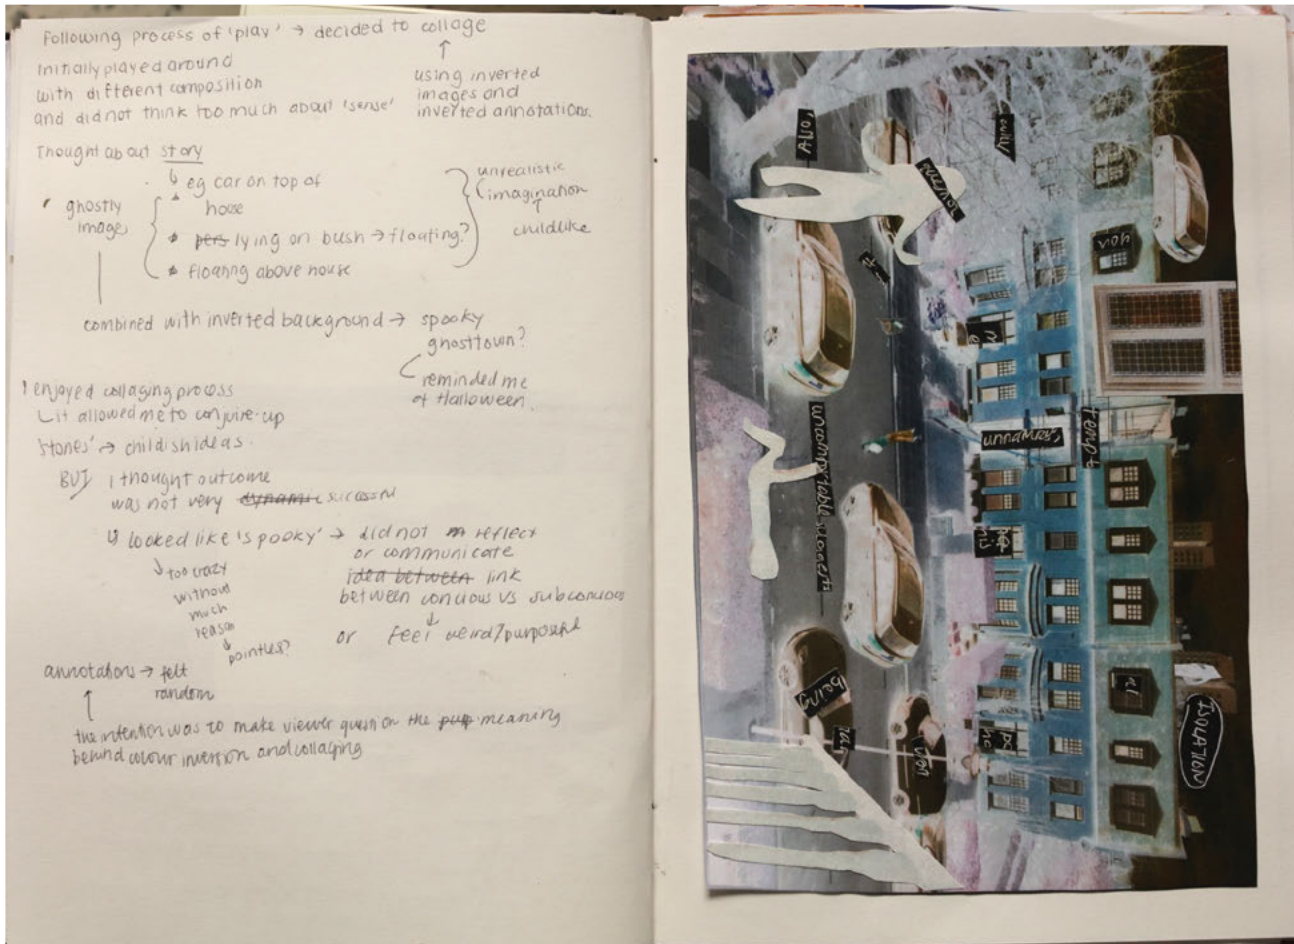 Following process of 'play' → decided to collage
↑
using inverted
images and
inverted annotations.
Initially played around
with different composition
and did not think too much about 'sense'
Thought about story
↳ eg car on top of
house
ghostly
images
pers lying on bush → floating?
floating above house
unrealistic
imagination
↑
childlike
combined with inverted background → spooky
ghosttown?
reminded me
of Halloween.
I enjoyed collaging process
↳ it allowed me to conjure up
'stories' → childish ideas.
BUT I thought outcome
was not very dynamic successful
↳ looked like 'spooky' → did not reflect
or communicate
idea between link
between concious vs subconcious
↓
or feel weird/purposeful
↓ too crazy
without
much
reason
↓
pointless?
annotations → felt
random
↑
the intention was to make viewer question the meaning
behind colour inversion and collaging
you
m
e
tempt
unnatural
being
ISOLATION